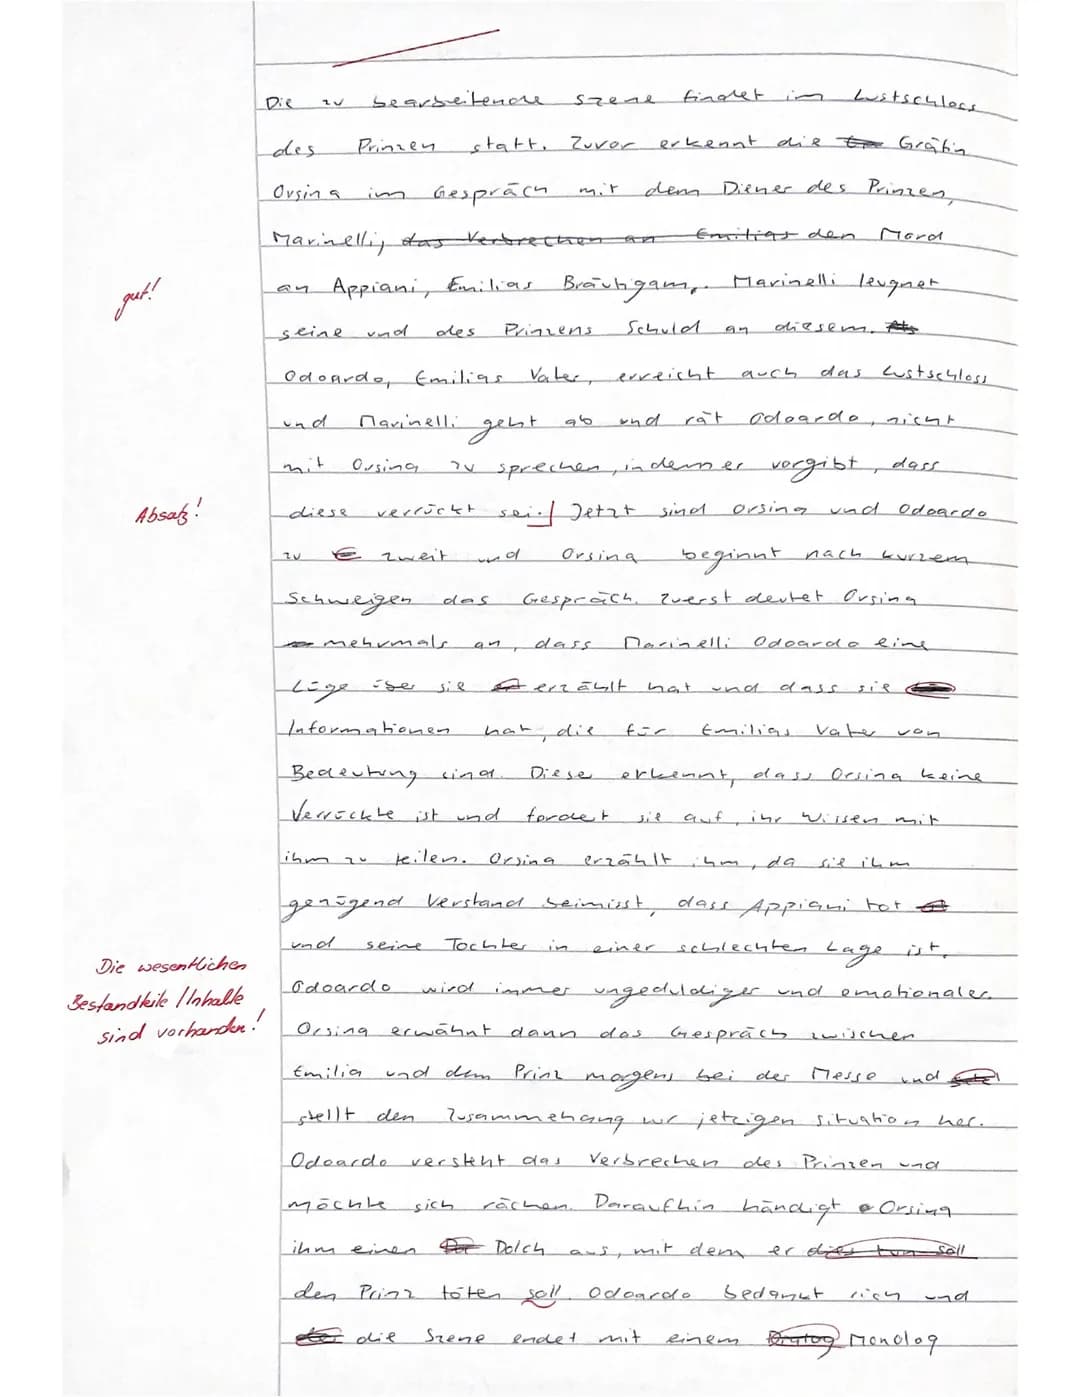 Die zu bearbeitende Szene findet im Lustschloss
des Prinzen statt. Zuvor erkennt die Gräfin
Orsina im Gespräch mit dem Diener des Prinzen,
Marinelli, das Verbrechen an Emilias den Mord
gut!
an Appiani, Emilias Bräutigam,. Marinelli leugnet
seine und des Prinzens Schuld an diesem. Als
Odoardo, Emilias Vater, erreicht auch das Lustschloss
und Marinelli geht ab und rät Odoardo, nicht
mit Orsina zu sprechen, indem er vorgibt, dass
Absatz!
diese verrückt sei. Jetzt sind Orsina und Odoardo
zu zweit und Orsina beginnt nach kurzem
Schweigen das Gespräch. Zuerst deutet Orsina
mehrmals an, dass Marinelli Odoardo eine
Lüge über sie erzählt hat und dass sie
Informationen hat, die für Emilias Vater von
Bedeutung sind. Diese erkennt, dass Orsina keine
Verrückte ist und fordert sie auf, ihr Wissen mit
ihm zu teilen. Orsina erzählt ihm, da sie ihm
genügend Verstand beimisst, dass Appiani tot
und seine Tochter in einer schlechten Lage ist.
Die wesentlichen
Bestandteile / Inhalte
sind vorhanden!
Odoardo wird immer ungeduldiger und emotionaler.
Orsina erwähnt dann das Gespräch zwischen
Emilia und dem Prinz morgens bei der Messe und
stellt den Zusammehang zur jetzigen Situation her.
Odoardo versteht das Verbrechen des Prinzen und
möchte sich rächen. Daraufhin händigt Orsina
ihm einen Dolch aus, mit dem er dies tun soll
den Prinz töten soll. Odoardo bedankt sich und
die Szene endet mit einem Dialog Monolog